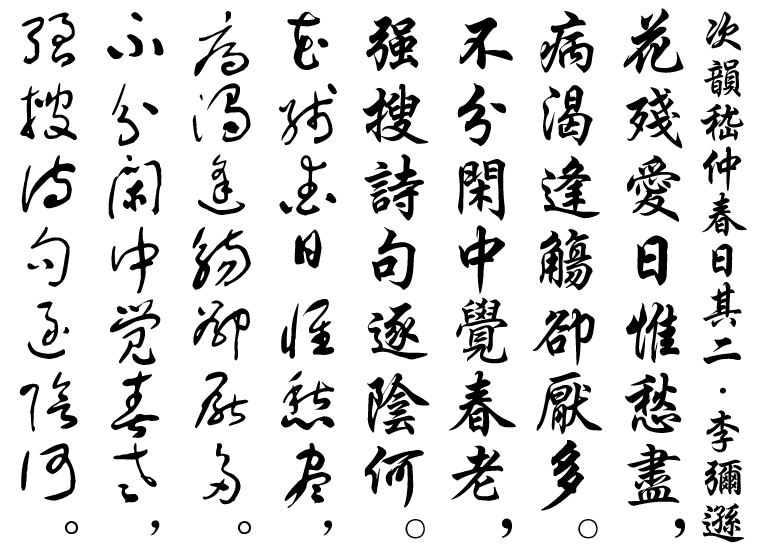 次韻嵇仲春日其二·李彌遜
花殘愛日惟愁盡，
病渴逢觴卻厭多。
不分閑中覺春老，
强搜詩句逐陰何。
花殘愛日惟愁盡，
病渴逢觴卻厭多。
不分閑中覺春老，
强搜詩句逐陰何。